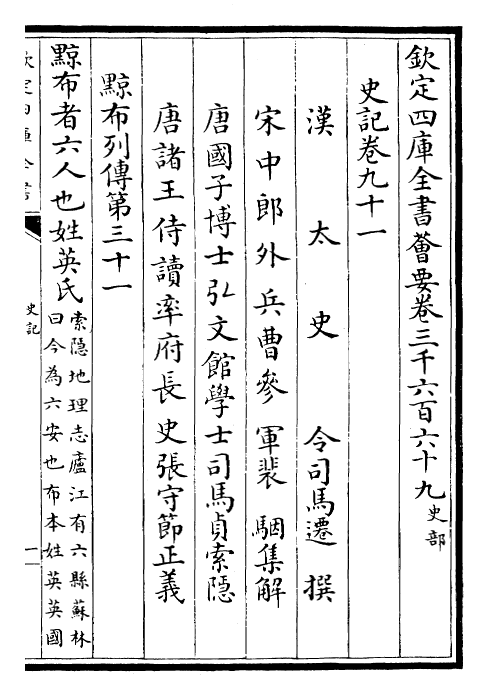 欽定四庫全書薈要卷三千六百六十九史部
史記卷九十一
漢太史令司馬遷撰
宋中郎外兵曹參軍裴駰集解
唐國子博士弘文館學士司馬貞索隱
唐諸王侍讀率府長史張守節正義
黥布列傳第三十一
黥布者六人也姓英氏
索隱地理志廬江有六縣蘇林
曰今為六安也布本姓英英國
欽定四庫全書
史記
一